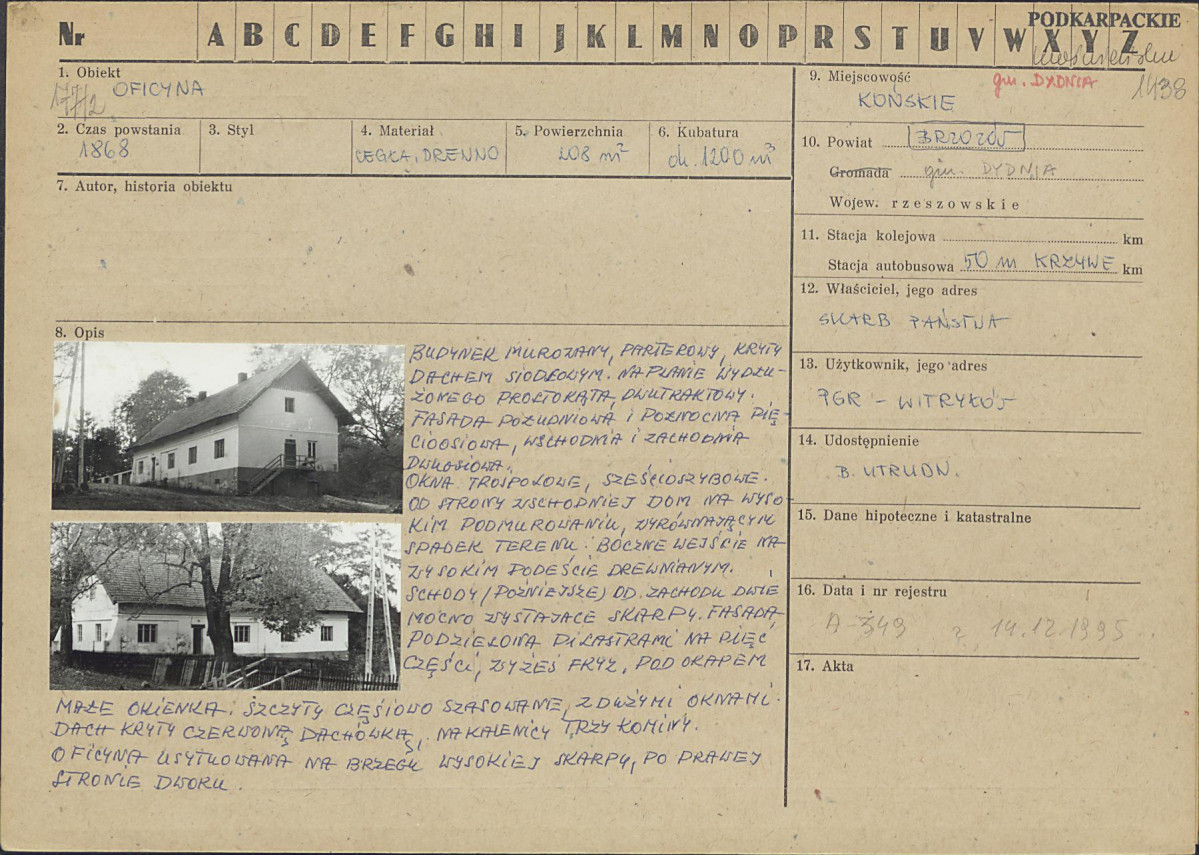 Nr A B C D E F G H I J K L M N O P R S T U V W X Y Z
PODKARPACKIE
1. Obiekt
OFICYNA
2. Czas powstania
1868
3. Styl
4. Materiał
CEGŁA, DREWNO
5. Powierzchnia
208 m²
6. Kubatura
ok. 1200 m³
7. Autor, historia obiektu
8. Opis
BUDYNEK MUROWANY, PARTEROWY, KRYTY
DACHEM SIODŁOWYM. NA PLANIE WYDŁU-
ŻONEGO PROSTOKĄTA, DWUTRAKTOWY.
FASADA POŁUDNIOWA I PÓŁNOCNA PIĘ-
CIOOSIOWA, WSCHODNIA I ZACHODNIA
DWUOSIOWA.
OKNA TRÓJPOLOWE, SZEŚCIOSZYBOWE.
OD STRONY WSCHODNIEJ DOM NA WYSO-
KIM PODMUROWANIU, WYRÓWNAJĄCYM
SPADEK TERENU. BOCZNE WEJŚCIE NA
WYSOKIM PODEŚCIE DREWNIANYM.
SCHODY (PÓŹNIEJSZE) OD ZACHODU DWIE
MOCNO WYSTAJĄCE SKARPY. FASADA
PODZIELONA PILASTRAMI NA PIĘĆ
CZĘŚCI, WYŻEJ FRYZ, POD OKAPEM
MAŁE OKIENKA. SZCZYTY CZĘŚIOWO SZASOWANE, Z DUŻYMI OKNAMI.
DACH KRYTY CZERWONĄ DACHÓWKĄ, NA KALENICY TRZY KOMINY.
OFICYNA USYTUOWANA NA BRZEGU WYSOKIEJ SKARPY, PO PRAWEJ
STRONIE DWORU.
9. Miejscowość
gm. DYDNIA
1438
KOŃSKIE
10. Powiat BRZOZÓW
Gromada gm. DYDNIA
Wojew. rzeszowskie
11. Stacja kolejowa km
Stacja autobusowa 50 m KRZYWE km
12. Właściciel, jego adres
SKARB PAŃSTWA
13. Użytkownik, jego adres
PGR - WITRYŁÓW
14. Udostępnienie
B. UTRUDN.
15. Dane hipoteczne i katastralne
16. Data i nr rejestru
A-349 z 14.12.1995
17. Akta